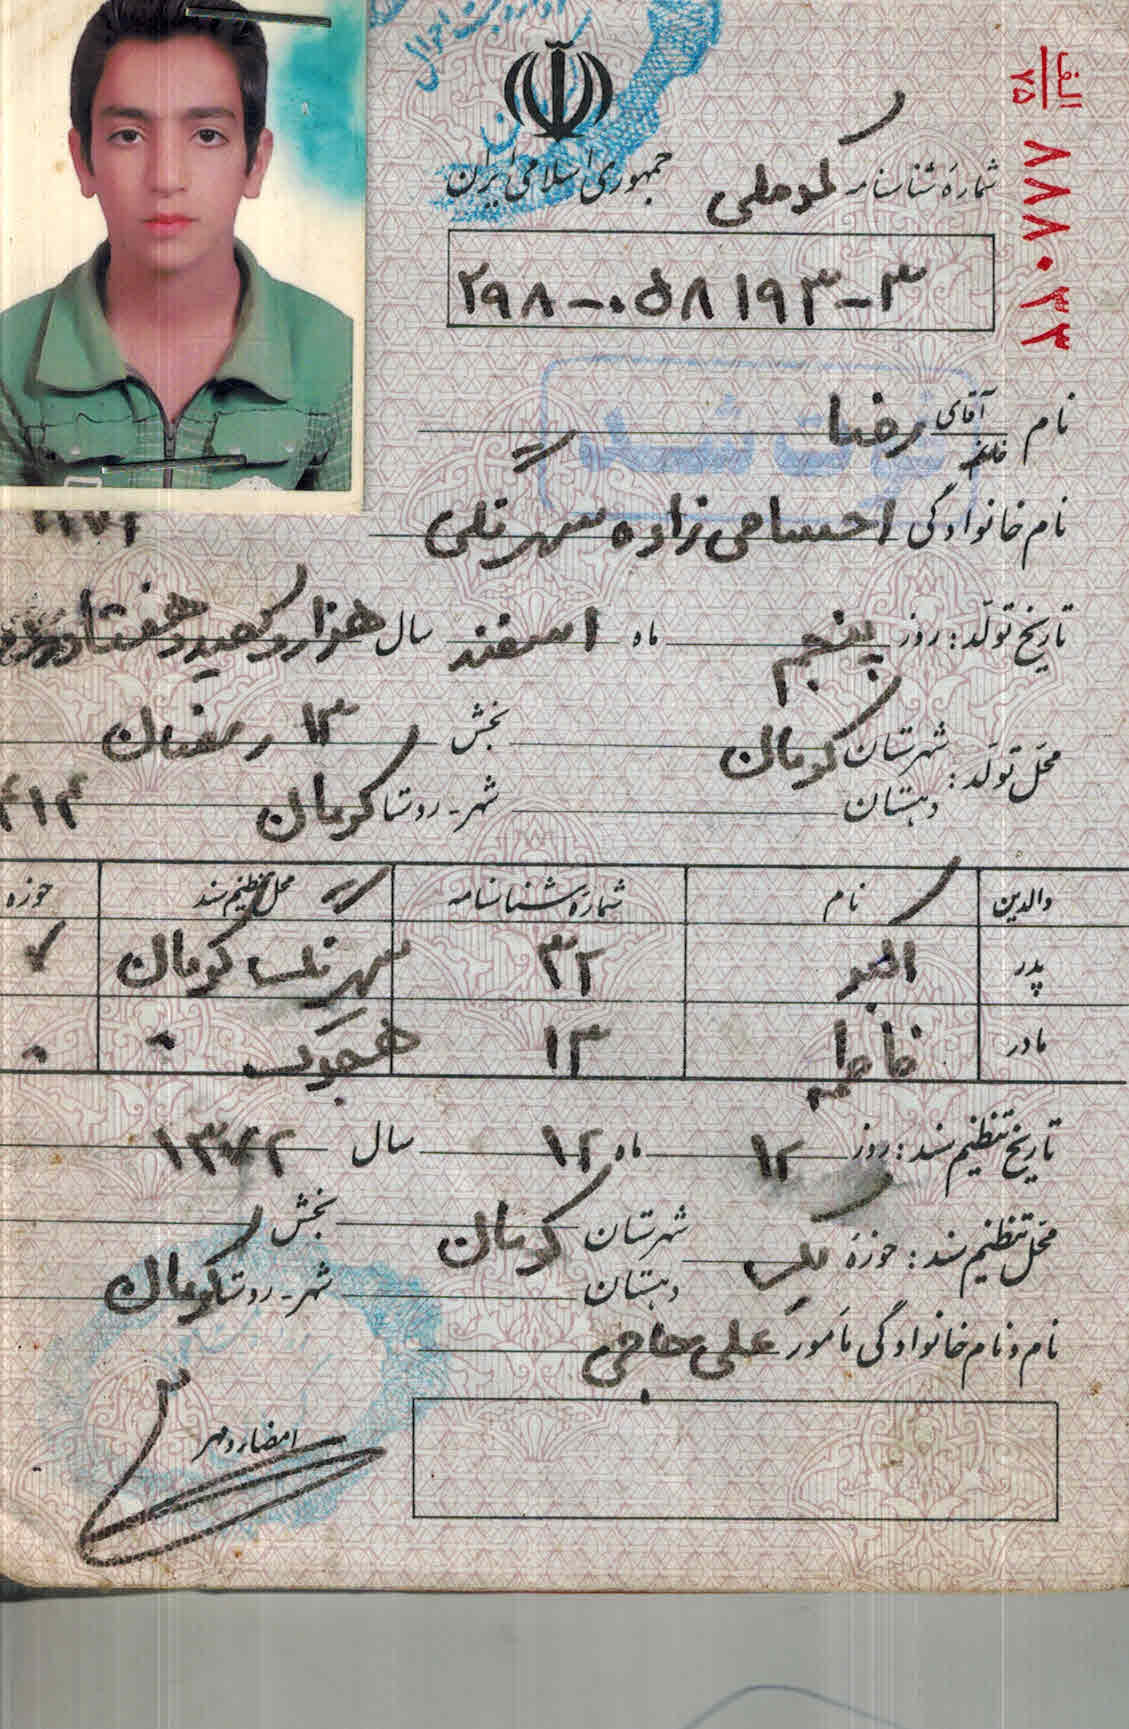 الف
۲۵
۸۸۸۰۳۳
جمهوری اسلامی ایران
شمارهٔ شناسنامه کدملی
۲۹۸-۰۵۸۱۹۳-۳
نام آقای خانم رضا
فوت شد
نام خانوادگی احسامی زاده سهرتلی
تاریخ تولّد: روز پنجم ماه اسفند سال هزار و سیصد و هفتاد و
محل تولّد: شهرستان کرمان بخش ۱۳ رمضان
دهستان شهر-روستا کرمان
والدین نام شمارهٔ شناسنامه محل تنظیم سند حوزه
پدر اکبر ۳۲ کرمان
مادر فاطمه ۱۳
تاریخ تنظیم سند: روز ۱۲ ماه ۱۲ سال ۱۳۷۲
محل تنظیم سند: حوزهٔ یک شهرستان کرمان بخش
دهستان شهر-روستا کرمان
نام و نام خانوادگی مأمور علی حاجی
امضاء و مهر